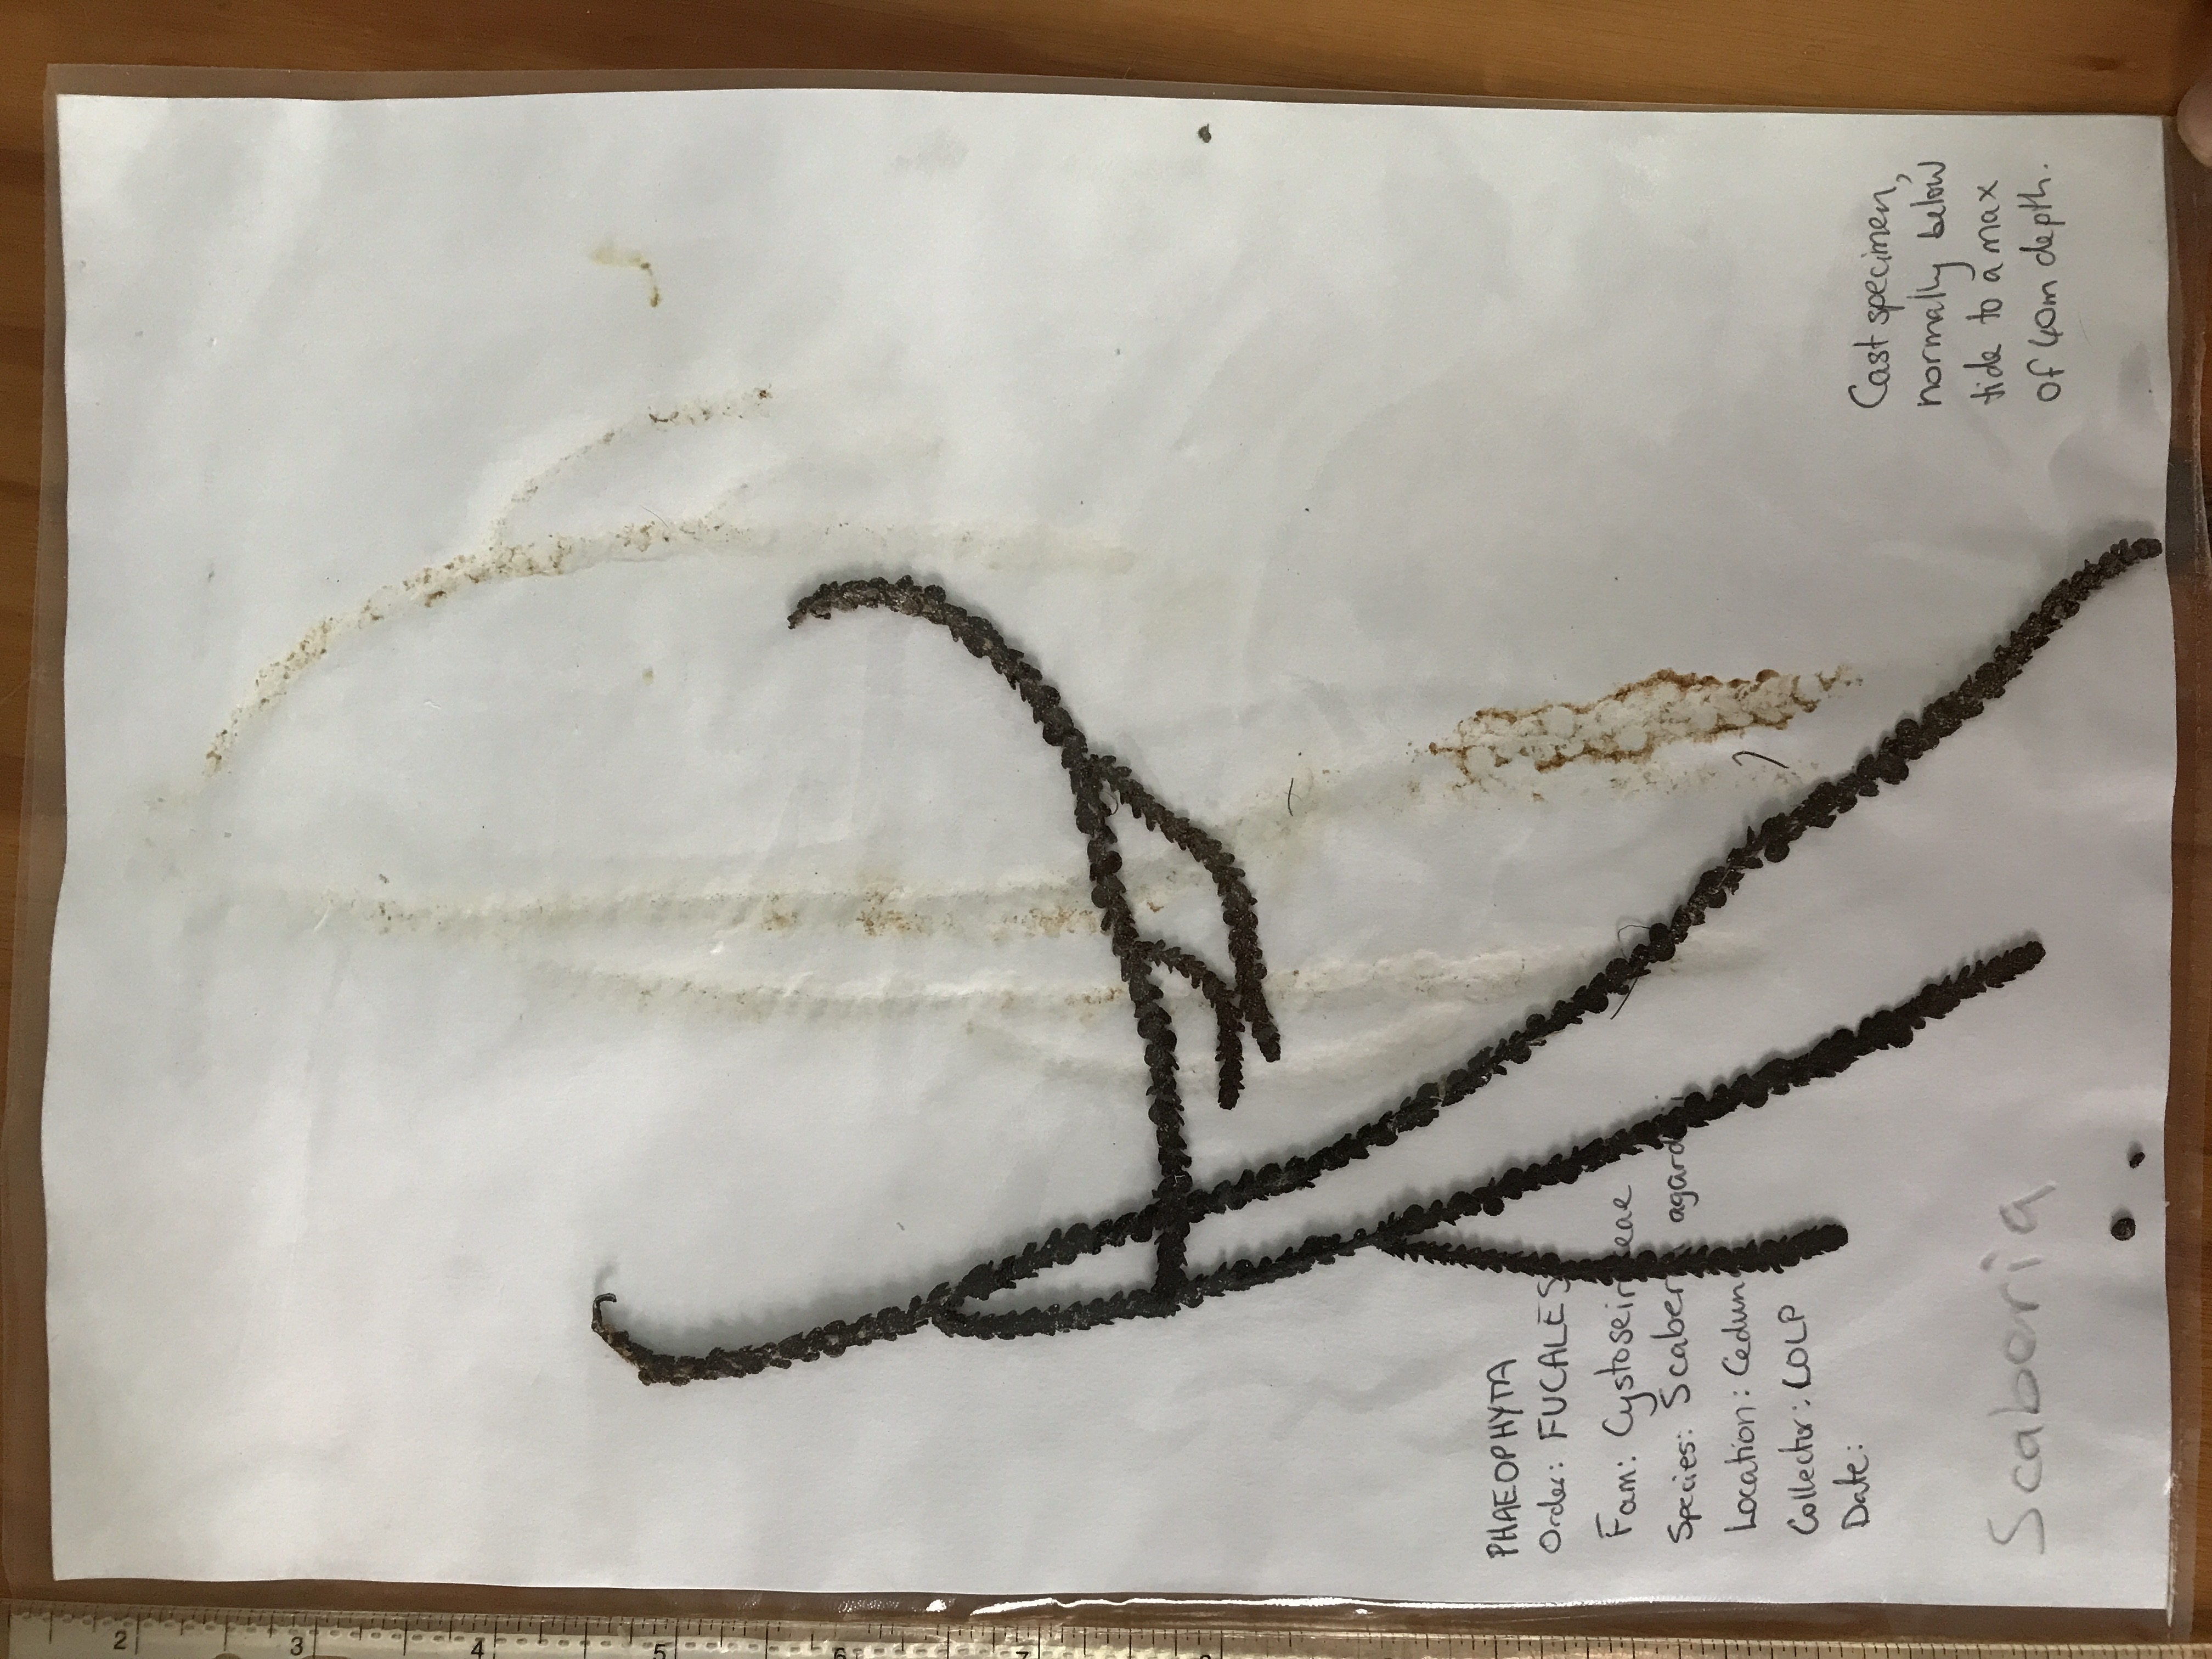 2
3
4
5
6
7
PHAEOPHYTA
Order: FUCALES
Fam: Cystoseir eae
Species: Scaber agard i
Location: Cedun
Collector: LOLP
Date:
Scaberia
Cast specimen,
normally below
tide to a max
of 40m depth.